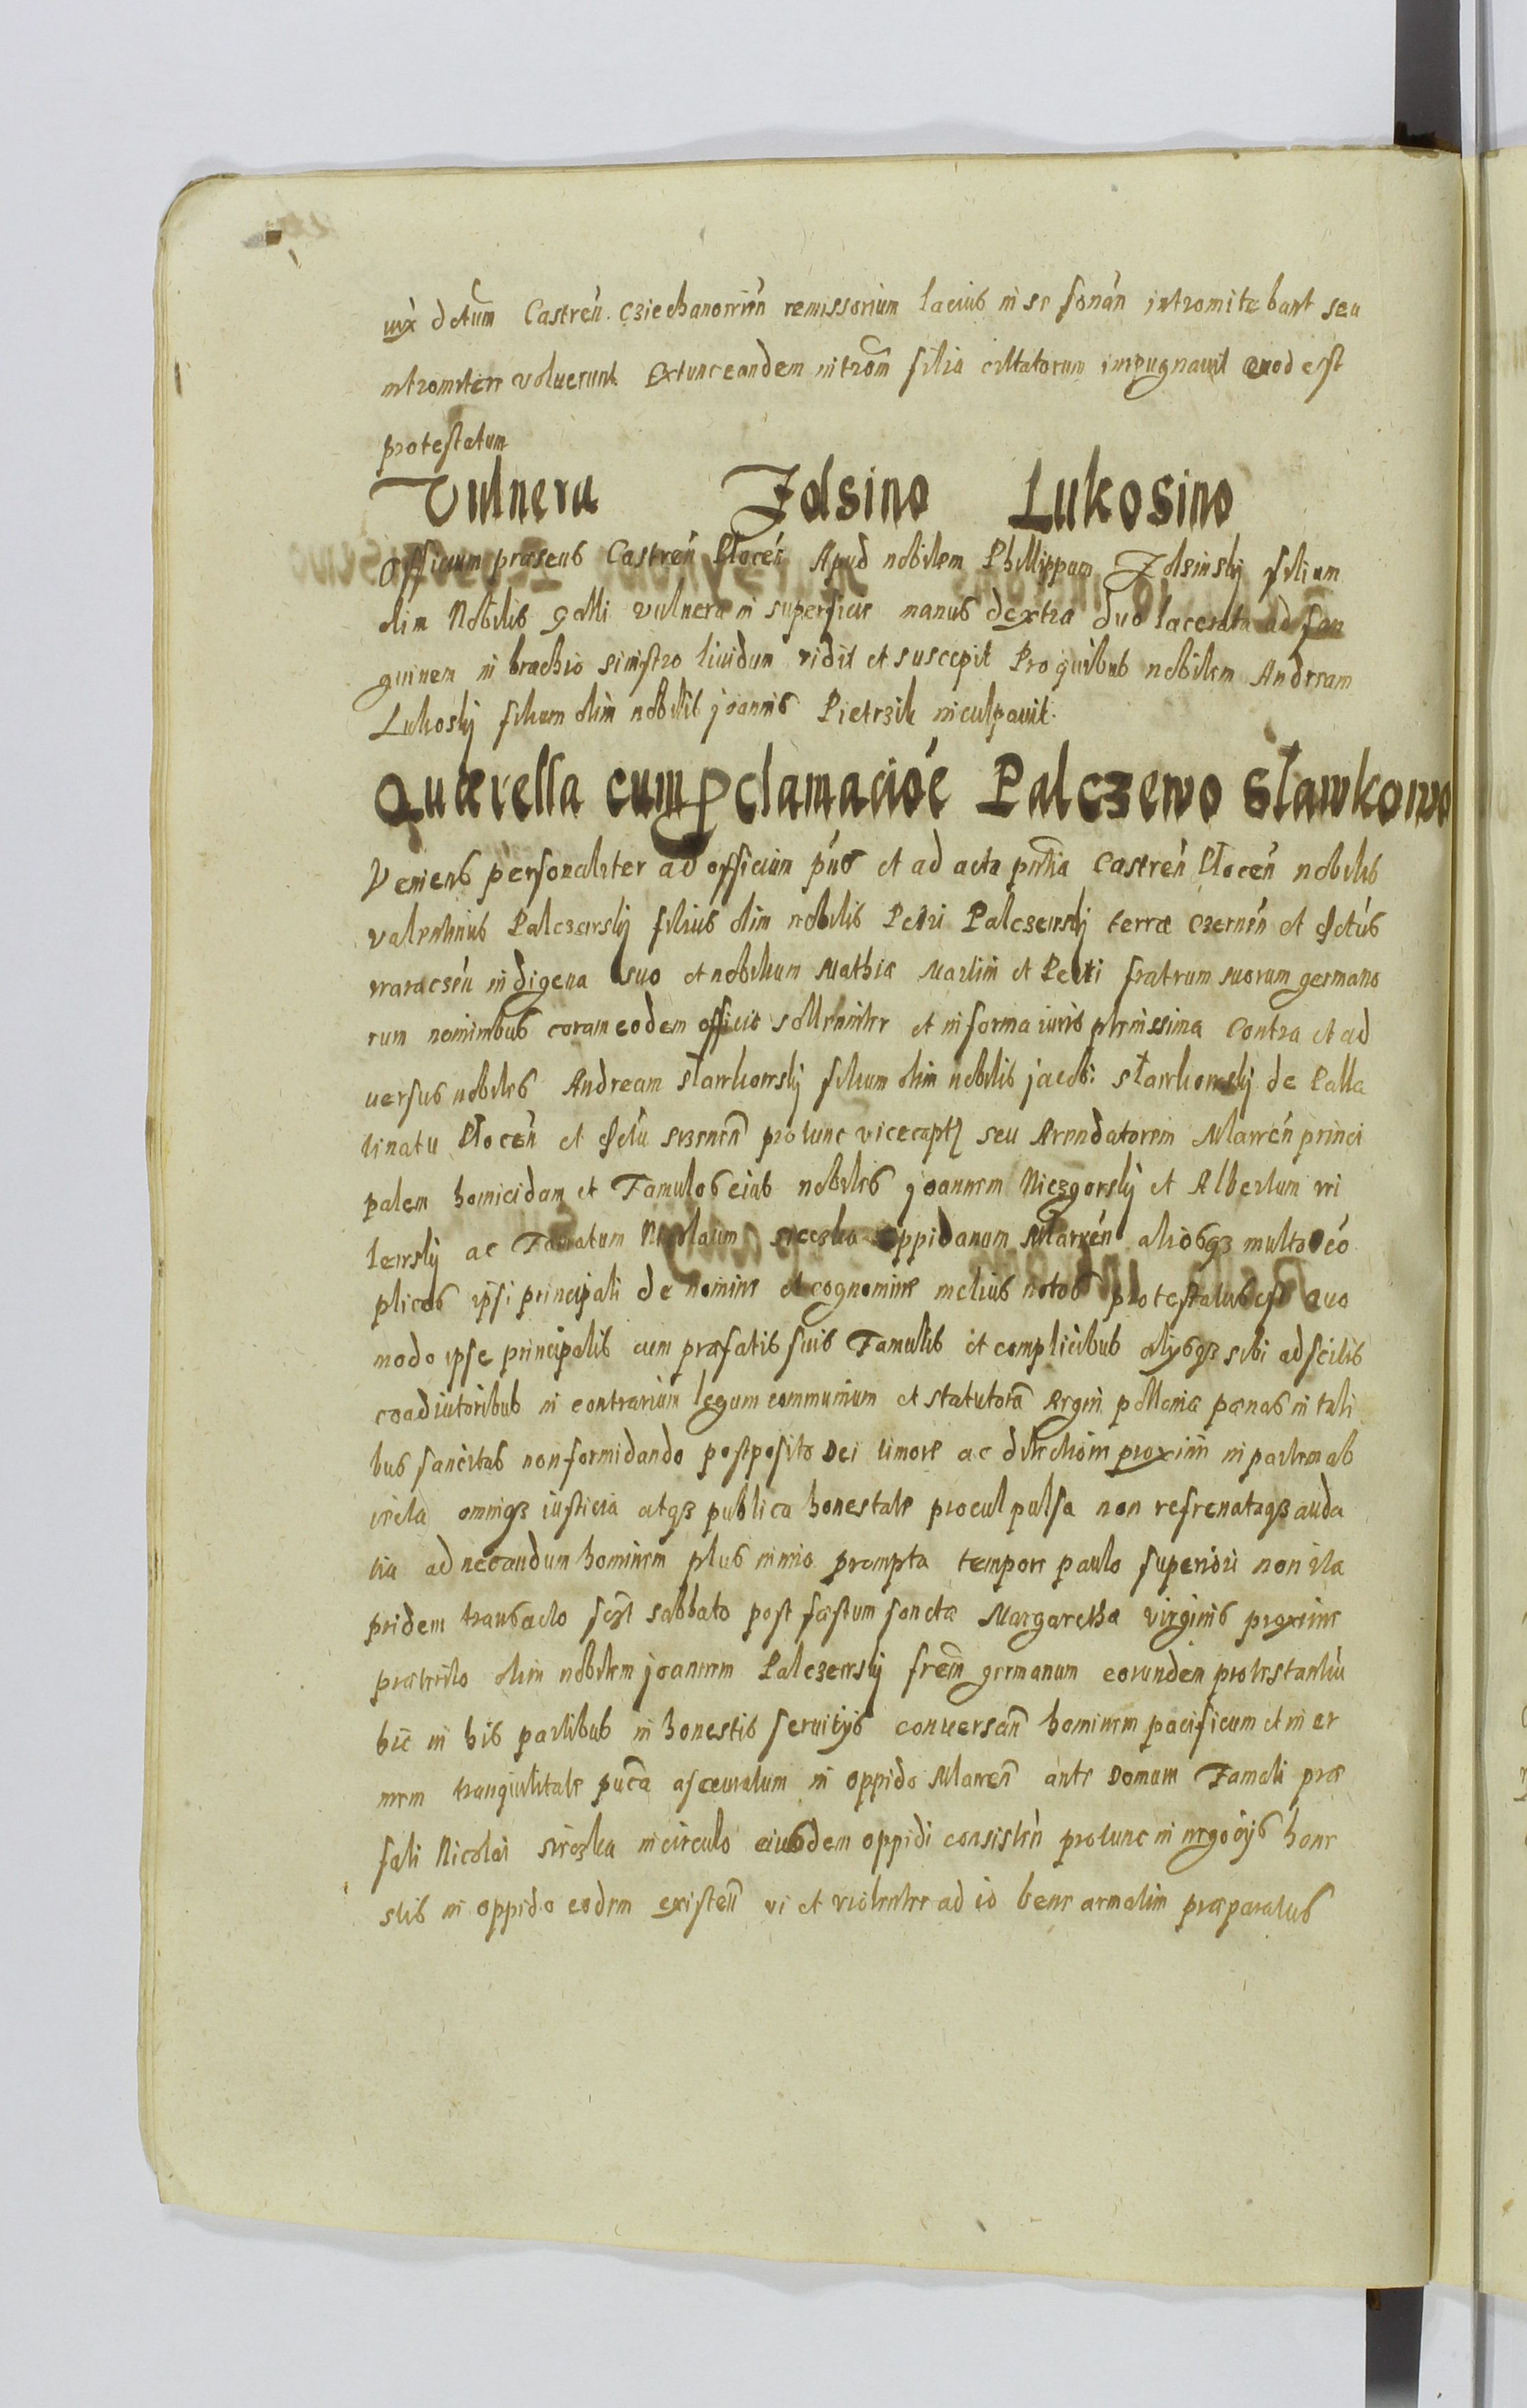 uix dctum Castren. Cziechanowien remissorium lacius in se sonan intromitebant seu
intromitere voluerunt Extunc eandem intrōm filia citatorum impugnauit quod est
protestatum
Vulnera Zdsino Lukosino
Officium præsens Castren Plocen Apud nobilem Phillippum Zdsinskij filium
olim Nobilis galli vulnera in superficie manus dextra duo lacerata ad san
guinem in brachio sinistro liuidum vidit et suscepit Pro quibus nobilem Andream
Lukoskij filium olim nobilis joannis Pietrzik inculpauit.
Quærella cum pclamacioe Palczewo Sławkowo
Veniens personaliter ad officium pns et ad acta pntia Castren Plocen nobilis
valentinus Palczewskij filius olim nobilis Petri Palczewskij terræ Czernen et dictus
indigena suo et nobilium Mathiæ Martini et Petri fratrum suorum germano
rum nominibus coram eodem officio sollenniter et in forma iuris plenissima Contra et ad
uersus nobiles Andream sławkowskij filium olim nobilis jacobi sławkowskij de Palla
tinatu Plocen et dictu protunc vicecaptm seu Arendatorem Mawen princi
palem homicidam et Famulos eius nobiles joannem Niezgorskij et Albertum wi
lewskij ac Nicolaum sieczka oppidanum Mawen aliosqз multos co
plices ipsi principali de nomine et cognomine melius notos protestatus est quo
modo ipse principalis cum præfatis suis Famulis et complicibus alijsqз sibi adscitis
coadiutoribus in contrarium legum communium et statutorū Regni polloniæ pænas in tali
bus sancitas non formidando postposito Dei timore ac dilectione proximi in partem ab
iecta omniqз iusticia atqз publica honestate procul pulsa non refrenataqз auda
tia ad necandum hominem plus nimio prompta tempore paulo superiori non ita
pridem transacto scȝt sabbato post fæstum sanctæ Margarethæ virginis proxime
præterito olim nobilem joannem Palczewskij frēm germanum eorundem protestantiu
hic in his partibus in honestis seruitijs conuersan hominem pacificum et in
tranquilitate puca in oppido Mawen ante Domum Famati præ
fati Nicolai sieczka in circulo eiusdem oppidi consisten protunc in negocijs hone
stis in oppido eodem existen vi et violenter ad id bene armatim præparatus